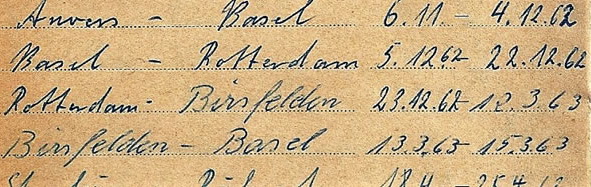 Anvers - Basel 6.11. - 4.12.62
Basel - Rotterdam 5.12.62 - 22.12.62
Rotterdam - Birsfelden 23.12.62 - 12.3.63
Birsfelden - Basel 13.3.63 - 15.3.63
18.4. - 25.4.63